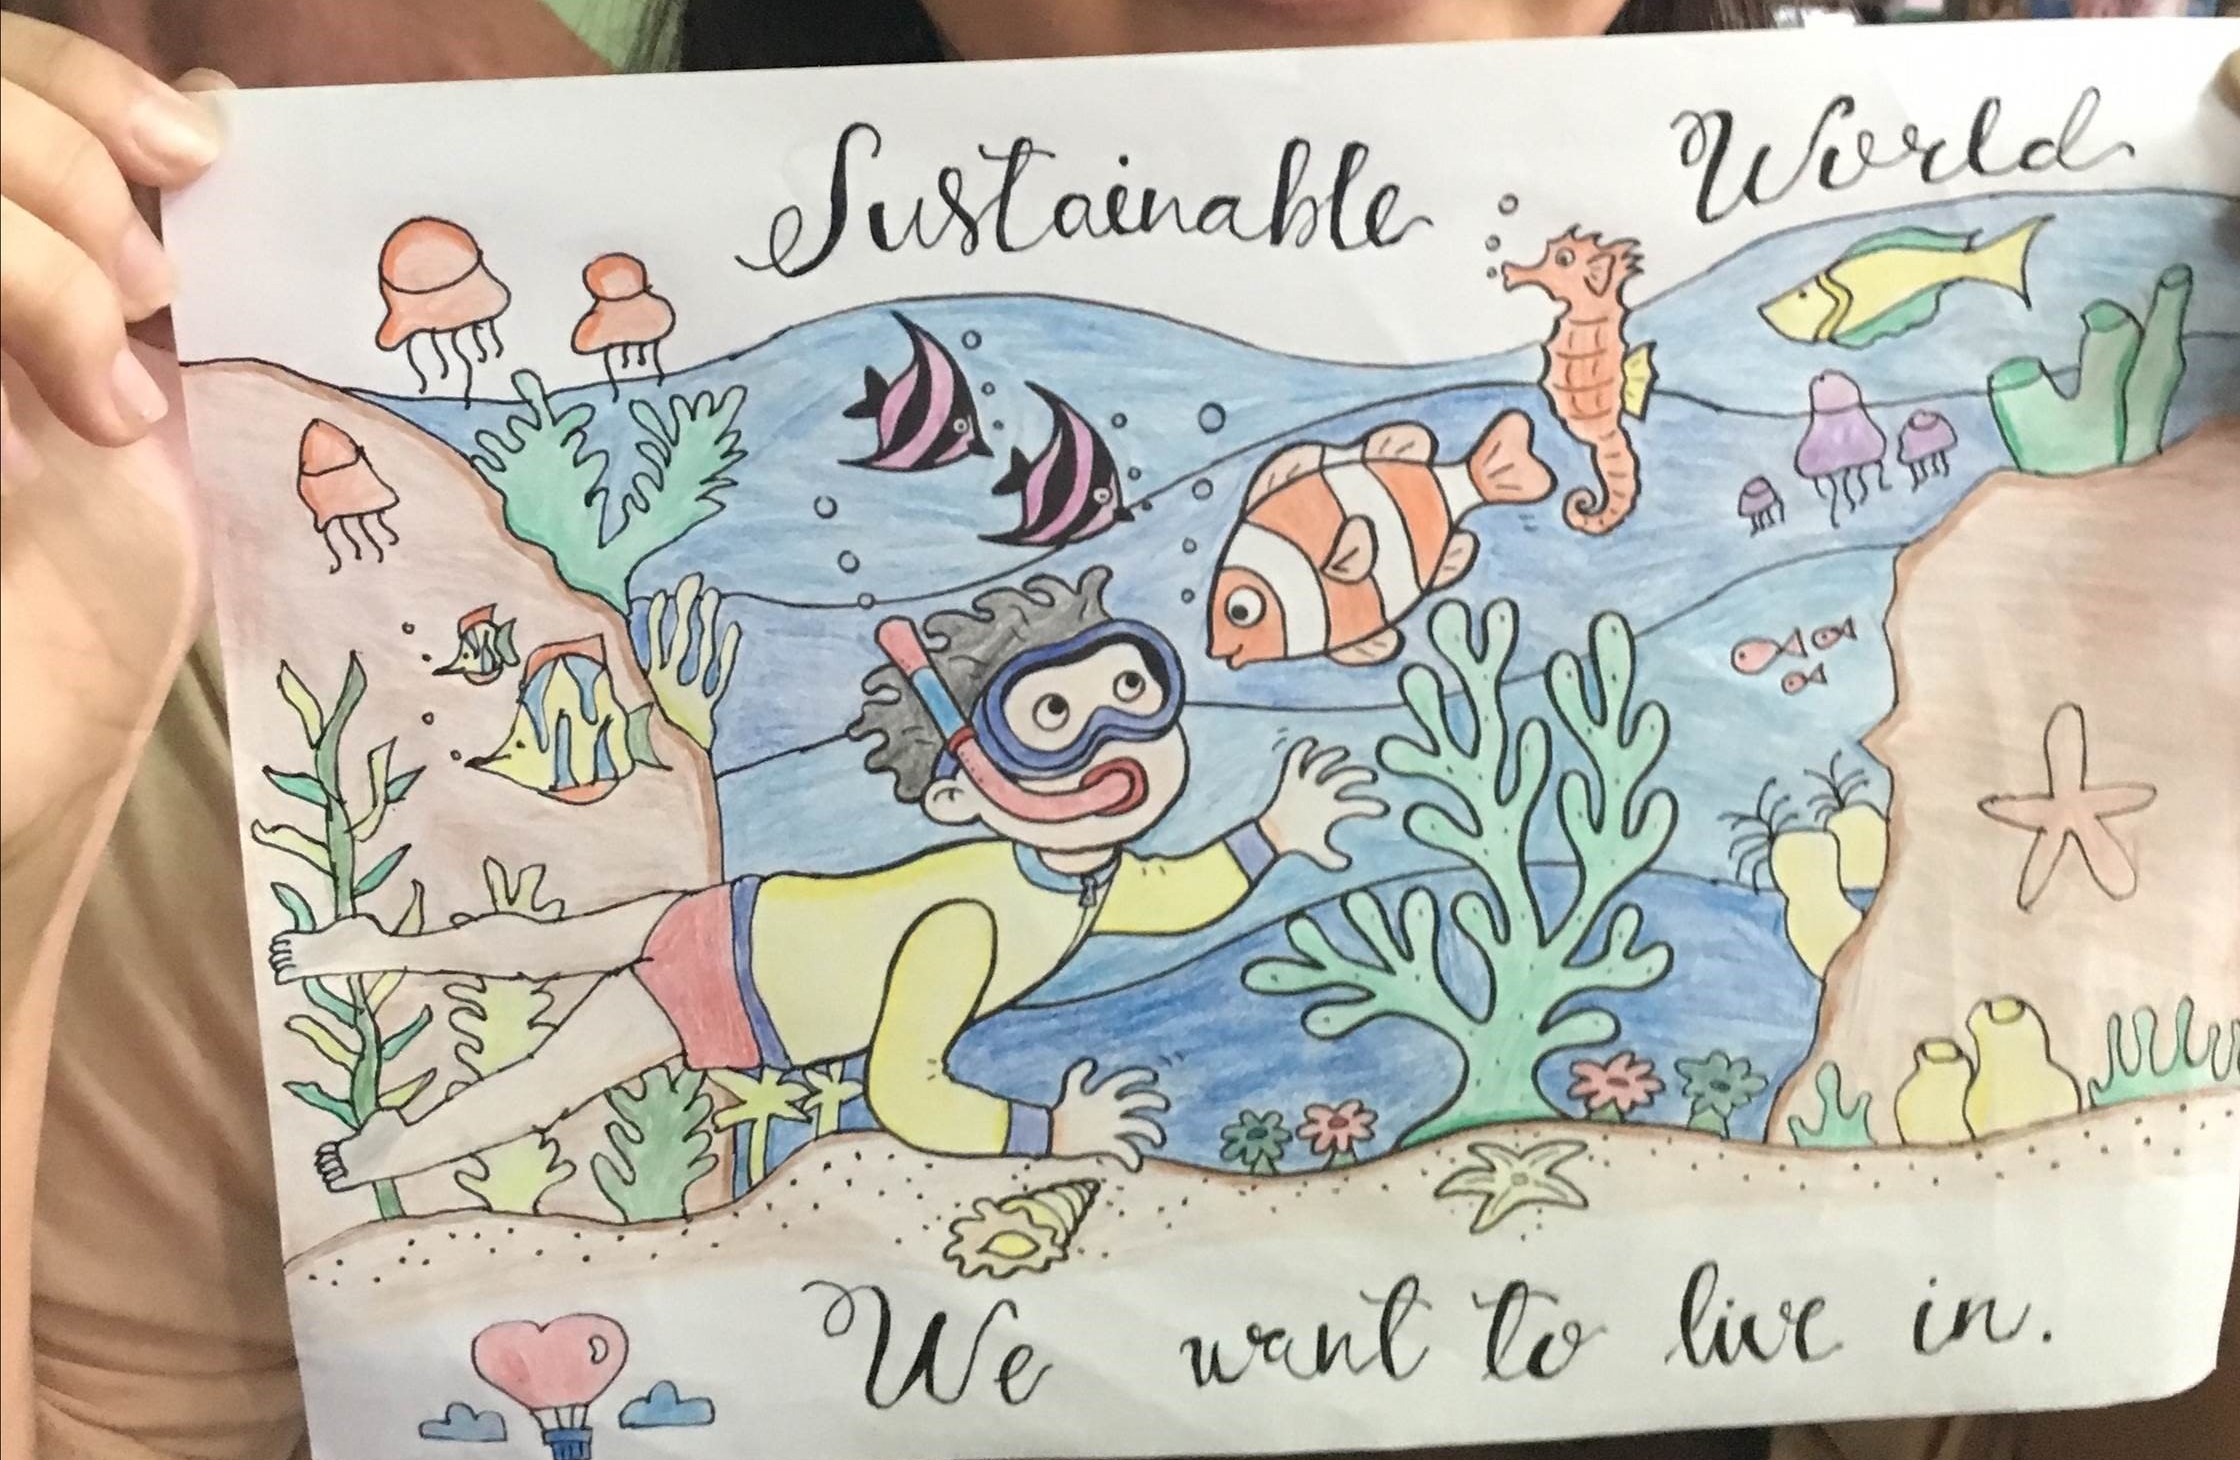 Sustainable World
We want to live in.